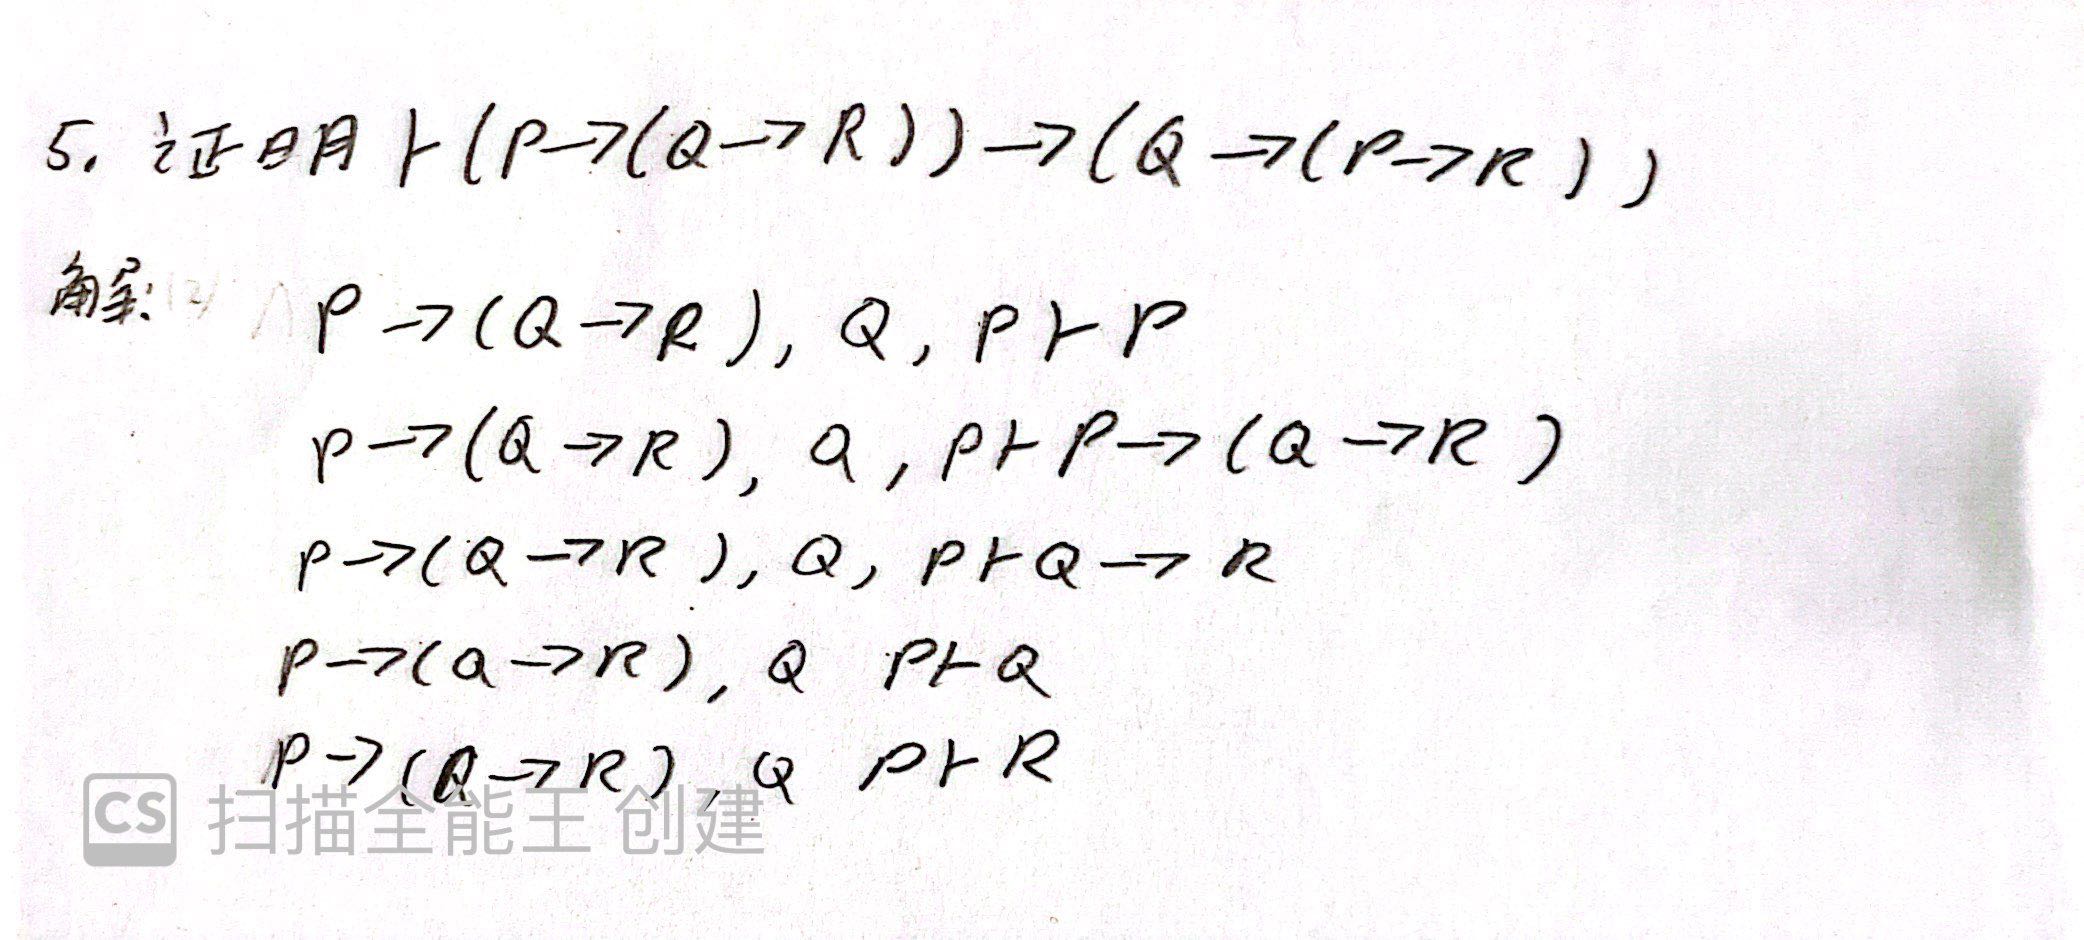 5. 证明 ⊢(P→(Q→R))→(Q→(P→R))
解:
P→(Q→R), Q, P⊢P
P→(Q→R), Q, P⊢P→(Q→R)
P→(Q→R), Q, P⊢Q→R
P→(Q→R), Q P⊢Q
P→(Q→R), Q P⊢R
CS 扫描全能王 创建